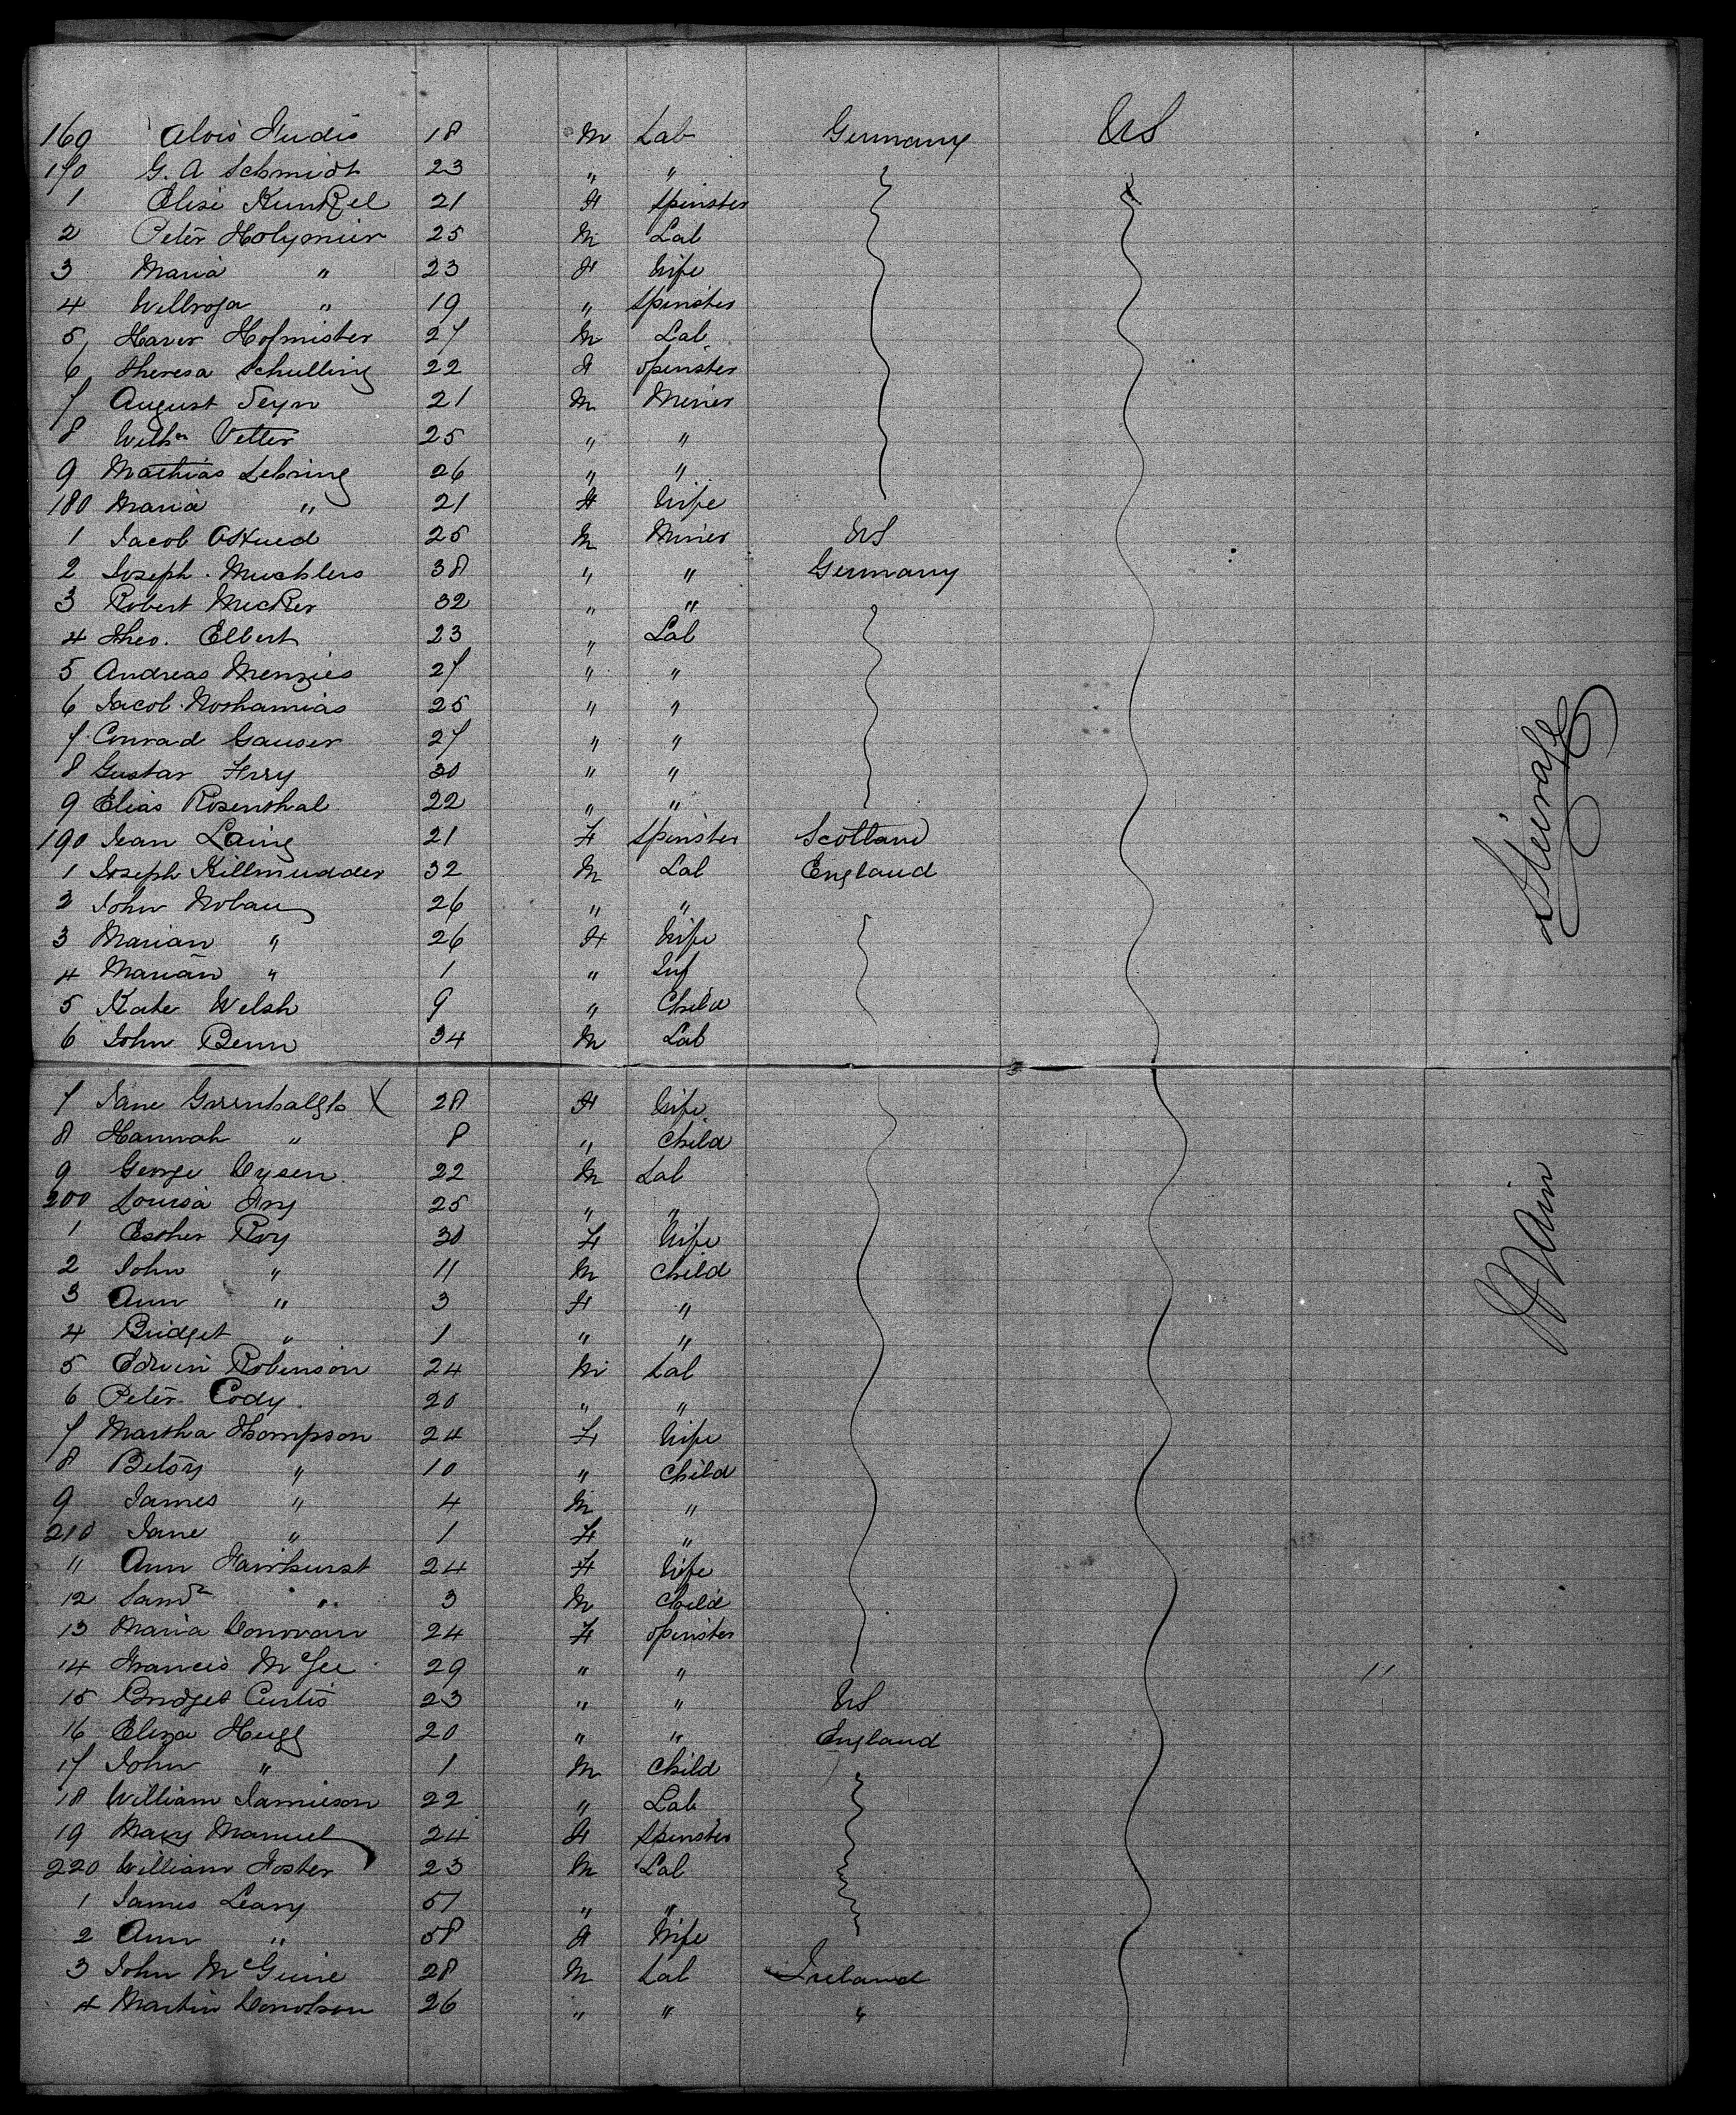 169 Alois Fudis 18 M Lab Germany US
170 G. A Schmidt 23 " "
1 Elise Kunkel 21 F Spinster
2 Peter Holymier 25 M Lab
3 Maria " 23 F Wife
4 " 19 " Spinster
5 Xaver Hofmister 27 M Lab
6 Theresa Schulling 22 F Spinster
7 August Seyn 21 M Miner
8 Wilhm Vetter 25 " "
9 Mathias Lehring 26 " "
180 Maria " 21 F Wife
1 Jacob 25 M Miner US
2 Joseph Muchlers 38 " " Germany
3 Robert Mucker 32 " "
4 Theo. Elbert 23 " Lab
5 Andreas Menzies 27 " "
6 Jacob Noshamias 25 " "
7 Conrad Gauser 27 " "
8 Gustav Frey 30 " "
9 Elias Rosenthal 22 " "
190 Jean Laing 21 F Spinster Scotland
1 Joseph Killmudder 32 M Lab England
2 John Nolan 26 " "
3 Marian " 26 F Wife
4 Marian " 1 " Inf
5 Kate Welsh 9 " Child
6 John Benn 34 M Lab
7 Jane Greenhalgh X 28 F Wife
8 Hannah " 8 " Child
9 George Dysen 22 M Lab
200 Louisa Fry 25 " "
1 Esther Roy 30 F Wife
2 John " 11 M Child
3 Ann " 3 F "
4 Bridget " 1 " "
5 Edwin Robinson 24 M Lab
6 Peter Cody 20 " "
7 Martha Thompson 24 F Wife
8 Betsy " 10 " Child
9 James " 4 M "
210 Jane " 1 F "
11 Ann Fairhurst 24 F Wife
12 Saml " 3 M Child
13 Maria Donovan 24 F Spinster
14 Francis McGee 29 " " 11
15 Bridget Curtis 23 " " US
16 Eliza Hugg 20 " " England
17 John " 1 M Child
18 William Jamieson 22 " Lab
19 Mary Manuel 24 F Spinster
220 William Foster 23 M Lab
1 James Leary 57 " "
2 Ann " 58 F Wife
3 John McGuire 28 M Lab Ireland
4 Martin Donolson 26 " " "
Steerage
Main